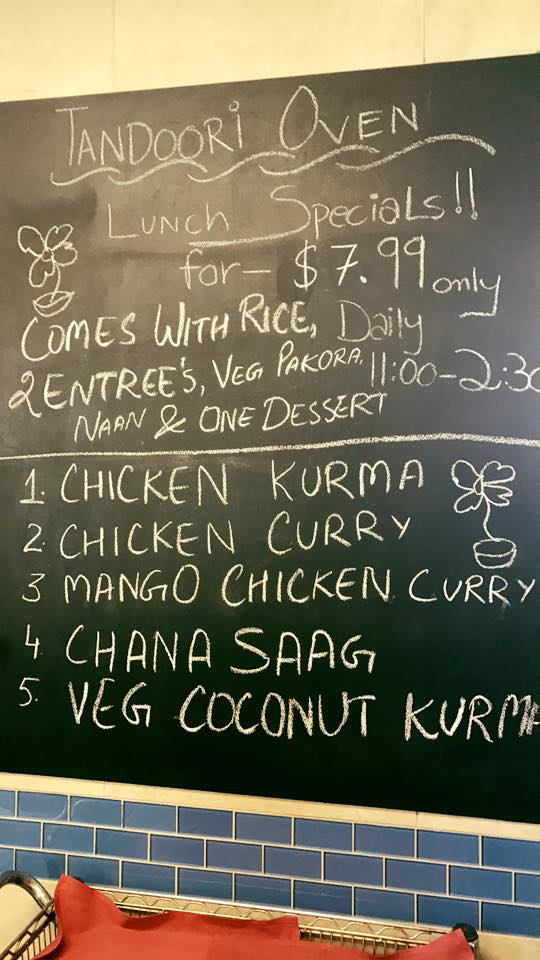 TANDOORI OVEN
Lunch Specials!!
for- $7.99 only
COMES WITH RICE, Daily
2 ENTREE'S, VEG PAKORA, 11:00-2:30
NAAN & ONE DESSERT
1. CHICKEN KURMA
2. CHICKEN CURRY
3 MANGO CHICKEN CURRY
4. CHANA SAAG
5. VEG COCONUT KURMA